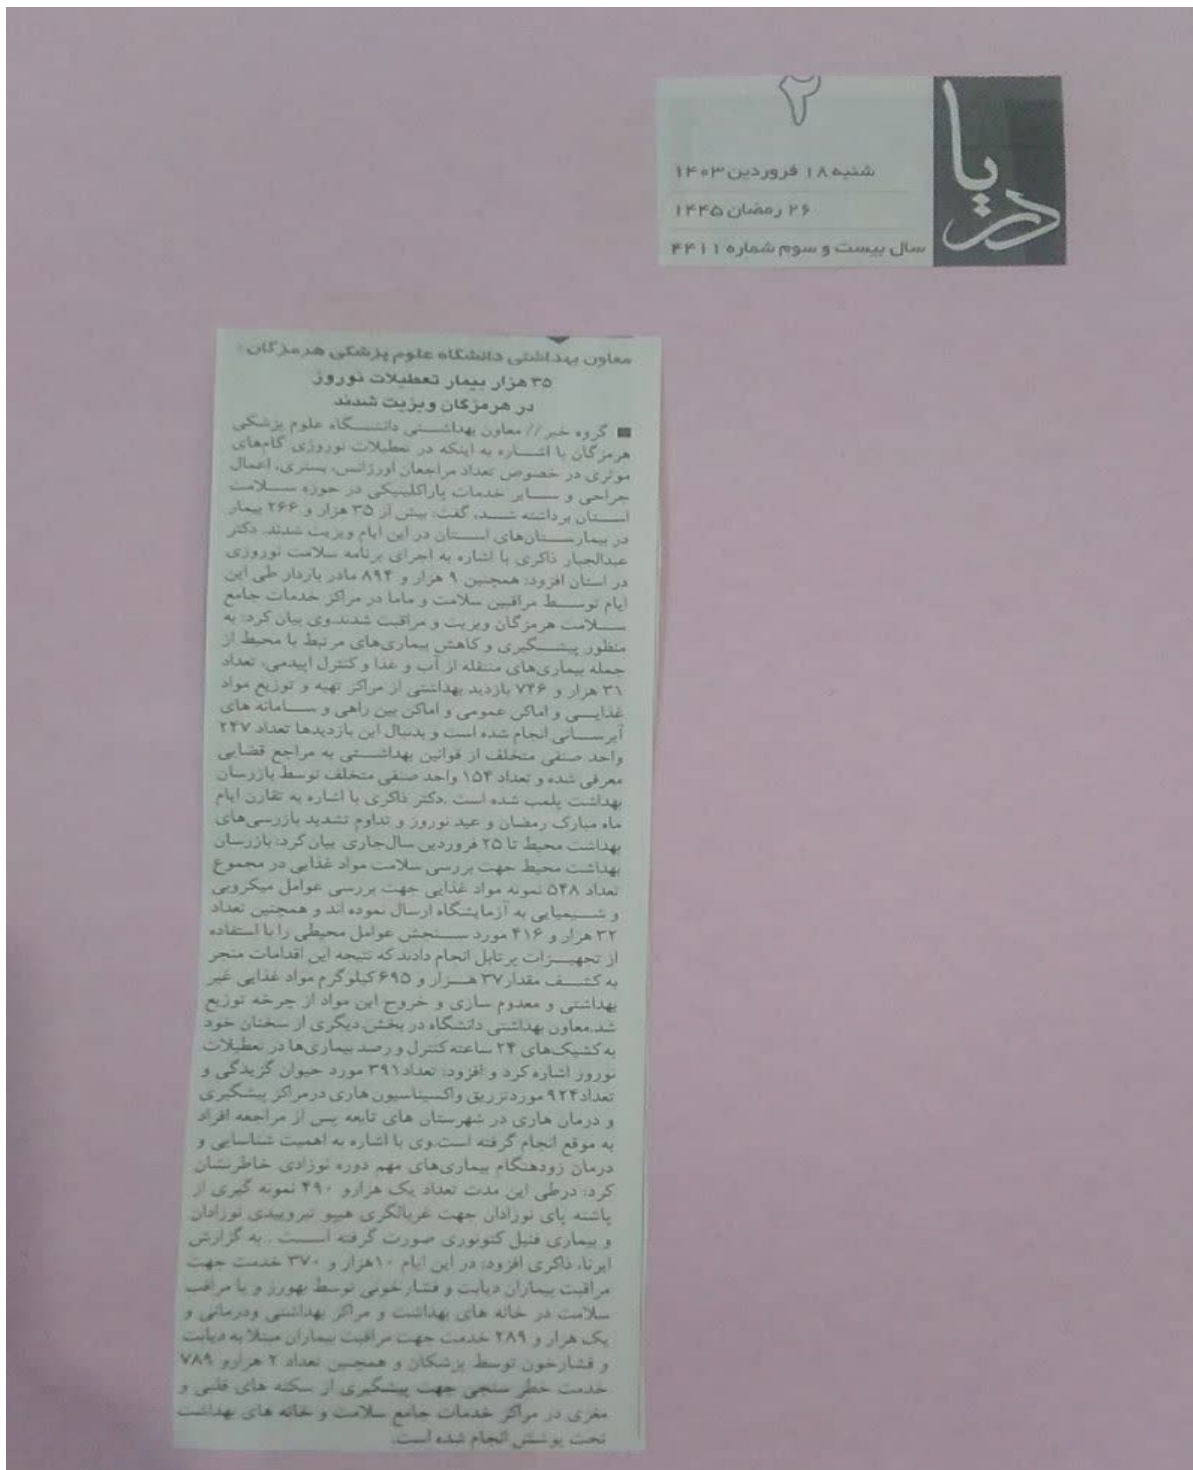 ۲
دریا
شنبه ۱۸ فروردین ۱۴۰۳
۲۶ رمضان ۱۴۴۵
سال بیست و سوم شماره ۴۴۱۱
معاون بهداشتی دانشگاه علوم پزشکی هرمزگان:
۳۵ هزار بیمار تعطیلات نوروز
در هرمزگان ویزیت شدند
■ گروه خبر // معاون بهداشتی دانشگاه علوم پزشکی
هرمزگان با اشاره به اینکه در تعطیلات نوروزی گام‌های
موثری در خصوص تعداد مراجعان اورژانس، بستری، اعمال
جراحی و سایر خدمات پاراکلینیکی در حوزه سلامت
استان برداشته شد، گفت: بیش از ۳۵ هزار و ۲۶۶ بیمار
در بیمارستان‌های استان در این ایام ویزیت شدند. دکتر
عبدالجبار ذاکری با اشاره به اجرای برنامه سلامت نوروزی
در استان افزود: همچنین ۹ هزار و ۸۹۴ مادر باردار طی این
ایام توسط مراقبین سلامت و ماما در مراکز خدمات جامع
سلامت هرمزگان ویزیت و مراقبت شدند.وی بیان کرد: به
منظور پیشگیری و کاهش بیماری‌های مرتبط با محیط از
جمله بیماری‌های منتقله از آب و غذا و کنترل اپیدمی، تعداد
۳۱ هزار و ۷۴۶ بازدید بهداشتی از مراکز تهیه و توزیع مواد
غذایی و اماکن عمومی و اماکن بین راهی و سامانه های
آبرسانی انجام شده است و بدنبال این بازدیدها تعداد ۲۴۷
واحد صنفی متخلف از قوانین بهداشتی به مراجع قضایی
معرفی شده و تعداد ۱۵۴ واحد صنفی متخلف توسط بازرسان
بهداشت پلمب شده است .دکتر ذاکری با اشاره به تقارن ایام
ماه مبارک رمضان و عید نوروز و تداوم تشدید بازرسی‌های
بهداشت محیط تا ۲۵ فروردین سال‌جاری بیان کرد: بازرسان
بهداشت محیط جهت بررسی سلامت مواد غذایی در مجموع
تعداد ۵۴۸ نمونه مواد غذایی جهت بررسی عوامل میکروبی
و شیمیایی به آزمایشگاه ارسال نموده اند و همچنین تعداد
۳۲ هزار و ۴۱۶ مورد سنجش عوامل محیطی را با استفاده
از تجهیزات پرتابل انجام دادند که نتیجه این اقدامات منجر
به کشف مقدار ۳۷ هزار و ۶۹۵ کیلوگرم مواد غذایی غیر
بهداشتی و معدوم سازی و خروج این مواد از چرخه توزیع
شد.معاون بهداشتی دانشگاه در بخش دیگری از سخنان خود
به کشیک‌های ۲۴ ساعته کنترل و رصد بیماری‌ها در تعطیلات
نوروز اشاره کرد و افزود: تعداد ۳۹۱ مورد حیوان گزیدگی و
تعداد ۹۲۴ مورد تزریق واکسیناسیون هاری در مراکز پیشگیری
و درمان هاری در شهرستان های تابعه پس از مراجعه افراد
به موقع انجام گرفته است.وی با اشاره به اهمیت شناسایی و
درمان زودهنگام بیماری‌های مهم دوره نوزادی خاطرنشان
کرد: درطی این مدت تعداد یک هزارو ۴۹۰ نمونه گیری از
پاشنه پای نوزادان جهت غربالگری هیپو تیروییدی نوزادان
و بیماری فنیل کتونوری صورت گرفته است . به گزارش
ایرنا، ذاکری افزود: در این ایام ۱۰هزار و ۳۷۰ خدمت جهت
مراقبت بیماران دیابت و فشارخونی توسط بهورز و یا مراقب
سلامت در خانه های بهداشت و مراکز بهداشتی ودرمانی و
یک هزار و ۲۸۹ خدمت جهت مراقبت بیماران مبتلا به دیابت
و فشارخون توسط پزشکان و همچنین تعداد ۲ هزارو ۷۸۹
خدمت خطر سنجی جهت پیشگیری از سکته های قلبی و
مغزی در مراکز خدمات جامع سلامت و خانه های بهداشت
تحت پوشش انجام شده است.